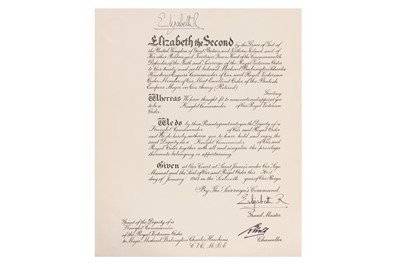 Elizabeth R
Elizabeth the Second by the Grace of God of
the United Kingdom of Great Britain and Northern Ireland and of
Her other Realms and Territories Queen, Head of the Commonwealth,
Defender of the Faith and Sovereign of the Royal Victorian Order
to Our trusty and well beloved Michael Babington Charles
Hawkins Esquire Commander of Our said Royal Victorian
Order Member of Our Most Excellent Order of the British
Empire Major in Our Army (Retired)
Greeting
Whereas We have thought fit to nominate and appoint you
to be a Knight Commander of Our Royal Victorian
Order
We do by these Presents grant unto you the Dignity of a
Knight Commander of Our said Royal Order
and We do hereby authorize you to have hold and enjoy the
said Dignity as a Knight Commander of Our said
Royal Order together with all and singular the privileges
thereunto belonging or appertaining
Given at Our Court at Saint James's under Our Sign
Manual and the Seal of Our said Royal Order this First
day of January 1967 in the Sixteenth year of Our Reign.
By The Sovereign's Command.
Elizabeth R
Grand Master
Grant of the Dignity of a
Knight Commander
of the Royal Victorian Order
to Major Michael Babington Charles Hawkins
C.V.O., M.B.E.
Chancellor